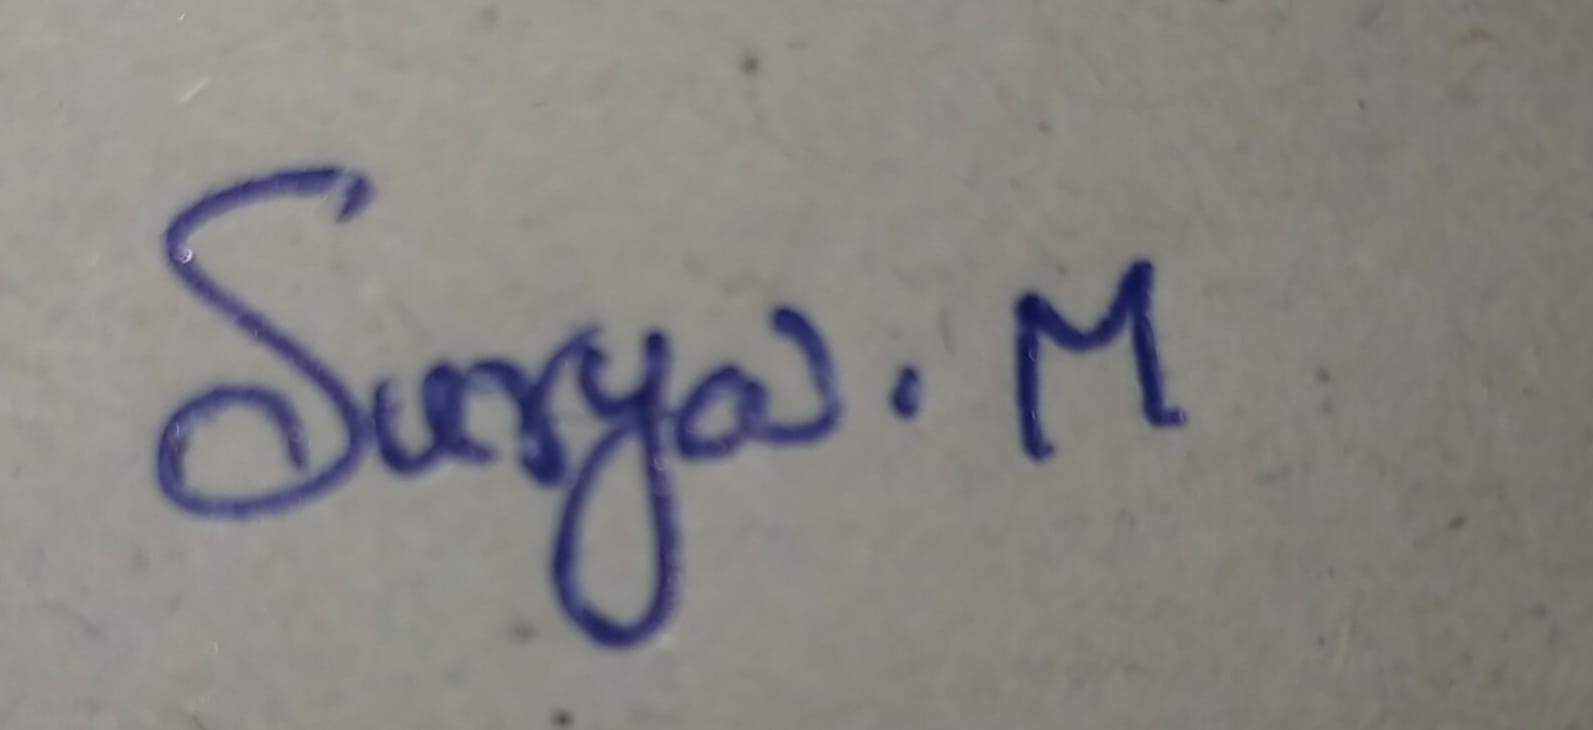 Surya. M